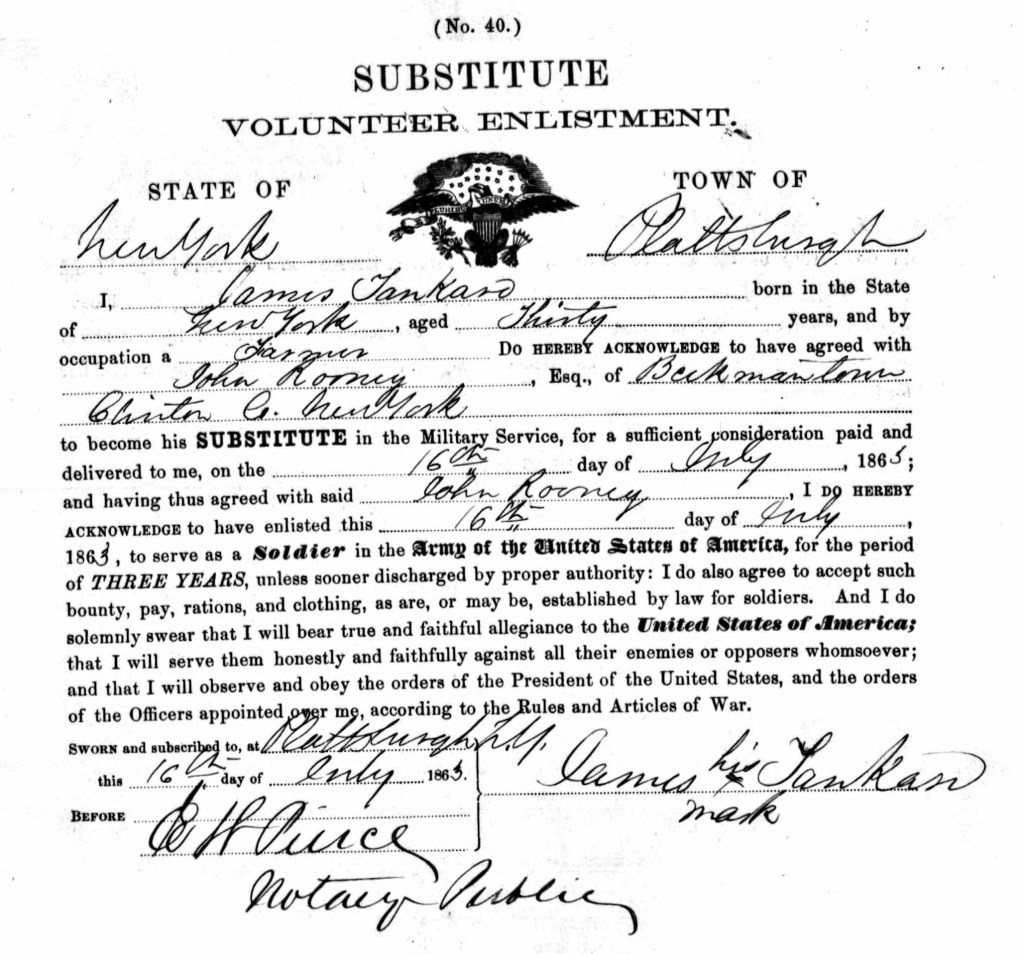 (No. 40.)
SUBSTITUTE
VOLUNTEER ENLISTMENT.
STATE OF TOWN OF
E PLURIBUS UNUM
New York Plattsburgh
I, James Tankard born in the State
of New York, aged Thirty years, and by
occupation a Farmer Do HEREBY ACKNOWLEDGE to have agreed with
John Rooney, Esq., of Beekmantown
Clinton Co. New York
to become his SUBSTITUTE in the Military Service, for a sufficient consideration paid and
delivered to me, on the 16th day of July, 1863;
and having thus agreed with said John Rooney, I DO HEREBY
ACKNOWLEDGE to have enlisted this 16th day of July,
1863, to serve as a Soldier in the Army of the United States of America, for the period
of THREE YEARS, unless sooner discharged by proper authority: I do also agree to accept such
bounty, pay, rations, and clothing, as are, or may be, established by law for soldiers. And I do
solemnly swear that I will bear true and faithful allegiance to the United States of America;
that I will serve them honestly and faithfully against all their enemies or opposers whomsoever;
and that I will observe and obey the orders of the President of the United States, and the orders
of the Officers appointed over me, according to the Rules and Articles of War.
SWORN and subscribed to, at Plattsburgh N.Y.
this 16th day of July 1863.
James his x Tankard
mark
BEFORE
E H Pierce
Notary Public